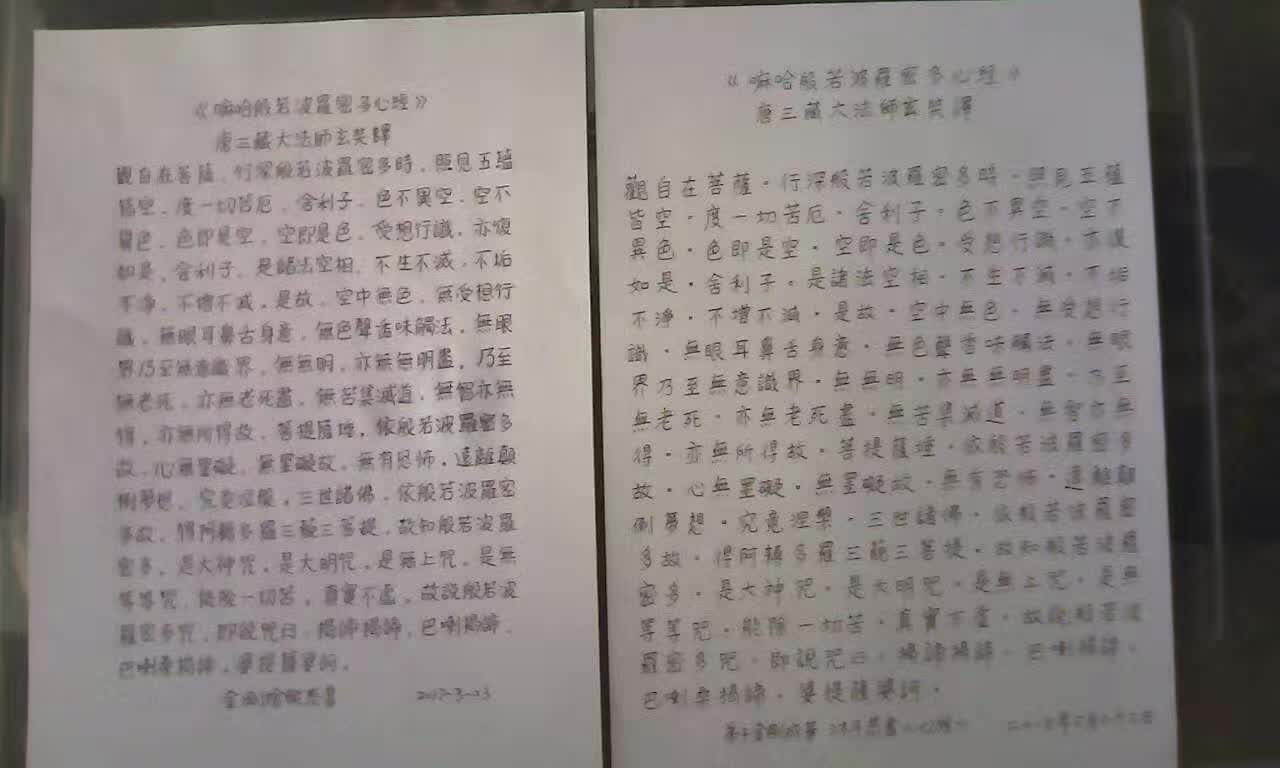 《嘛哈般若波羅密多心經》
唐三藏大法師玄奘譯
觀自在菩薩．行深般若波羅密多時．照見五蘊
皆空．度一切苦厄．舍利子．色不異空．空不
異色．色即是空．空即是色．受想行識．亦復
如是．舍利子．是諸法空相．不生不滅．不垢
不淨．不增不减．是故．空中無色．無受想行
識．無眼耳鼻舌身意．無色聲香味觸法．無眼
界乃至無意識界．無無明．亦無無明盡．乃至
無老死．亦無老死盡．無苦集滅道．無智亦無
得．亦無所得故．菩提薩埵．依般若波羅密多
故．心無罣礙．無罣礙故．無有恐怖．遠離顛
倒夢想．究竟涅槃．三世諸佛．依般若波羅密
多故．得阿耨多羅三藐三菩提．故知般若波羅
密多．是大神咒．是大明咒．是無上咒．是無
等等咒．能除一切苦．真實不虛．故說般若波
羅密多咒．即說咒曰．揭諦揭諦．巴喇揭諦．
巴喇桑揭諦．婆提薩婆訶．
金剛
《嘛哈般若波羅密多心經》
唐三藏大法師玄奘譯
觀自在菩薩．行深般若波羅密多時．照見五蘊
皆空．度一切苦厄．舍利子．色不異空．空不
異色．色即是空．空即是色．受想行識．亦復
如是．舍利子．是諸法空相．不生不滅．不垢
不淨．不增不減．是故．空中無色．無受想行
識．無眼耳鼻舌身意．無色聲香味觸法．無眼
界乃至無意識界．無無明．亦無無明盡．乃至
無老死．亦無老死盡．無苦集滅道．無智亦無
得．亦無所得故．菩提薩埵．依般若波羅密多
故．心無罣礙．無罣礙故．無有恐怖．遠離顛
倒夢想．究竟涅槃．三世諸佛．依般若波羅密
多故．得阿耨多羅三藐三菩提．故知般若波羅
密多．是大神咒．是大明咒．是無上咒．是無
等等咒．能除一切苦．真實不虛．故說般若波
羅密多咒．即說咒曰．揭諦揭諦．巴喇揭諦．
巴喇桑揭諦．婆提薩婆訶．
弟子金剛